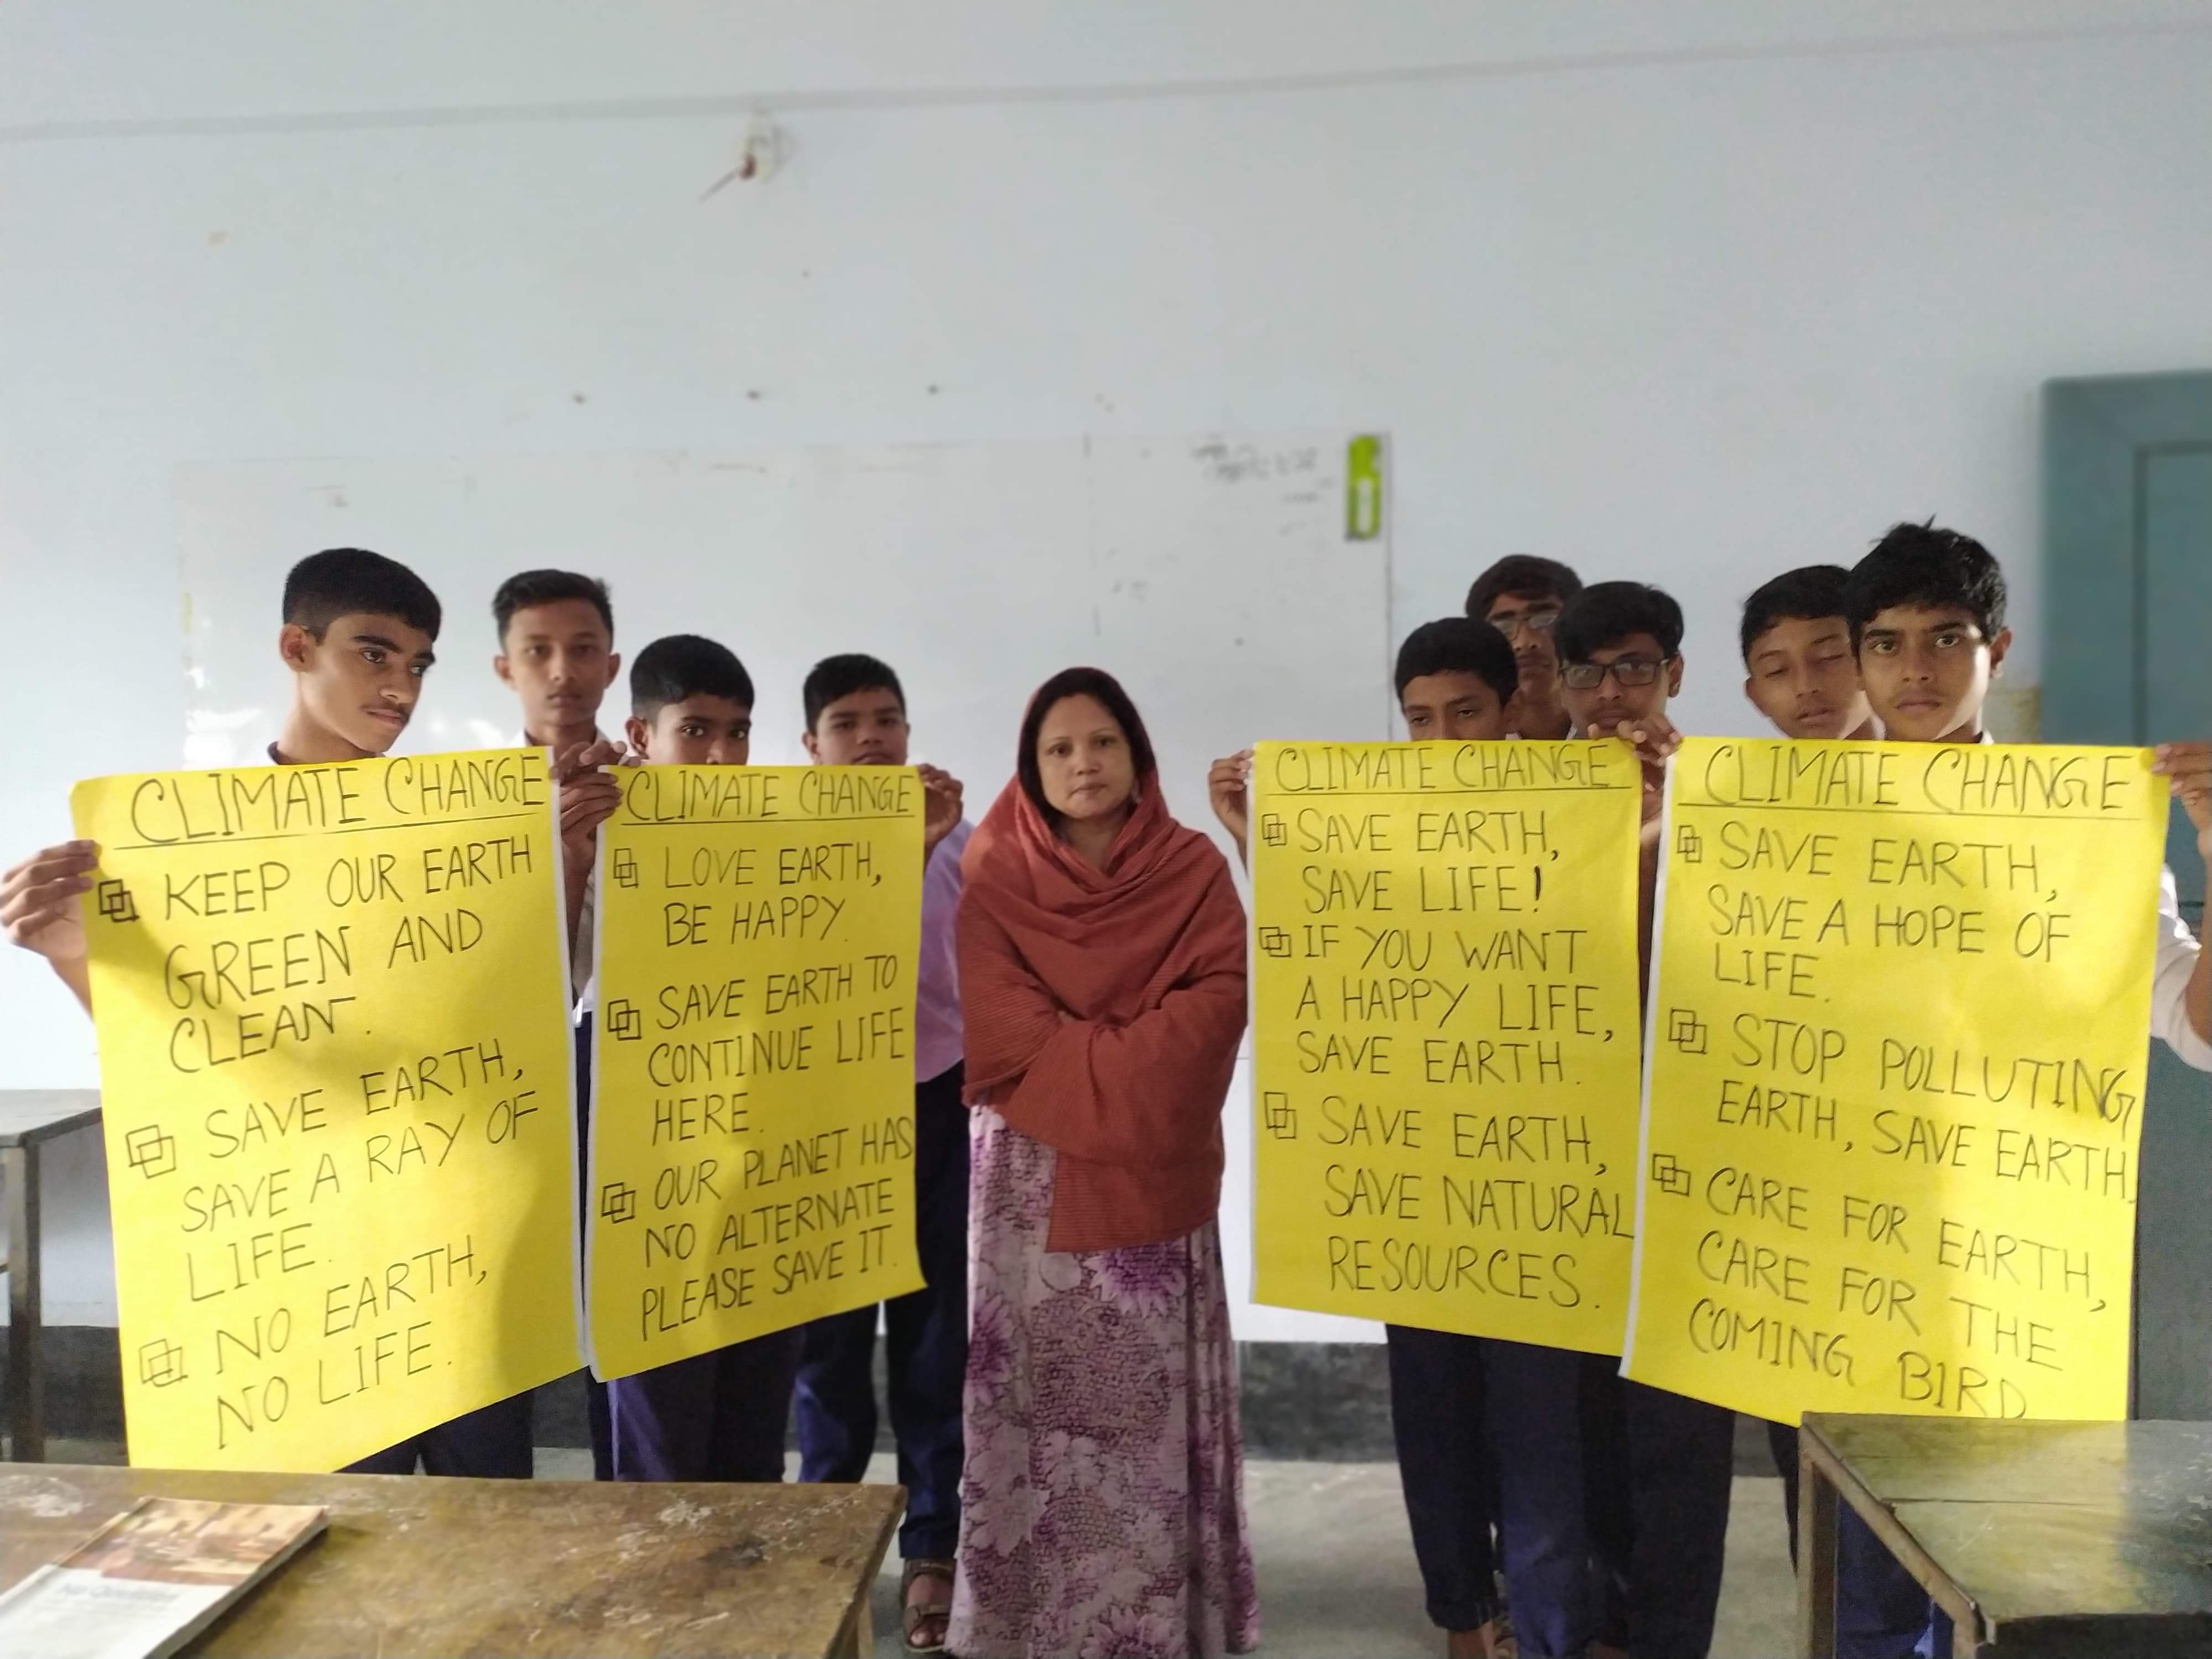 CLIMATE CHANGE
KEEP OUR EARTH
GREEN AND
CLEAN.
SAVE EARTH,
SAVE A RAY OF
LIFE.
NO EARTH,
NO LIFE.
CLIMATE CHANGE
LOVE EARTH,
BE HAPPY.
SAVE EARTH TO
CONTINUE LIFE
HERE.
OUR PLANET HAS
NO ALTERNATE
PLEASE SAVE IT.
CLIMATE CHANGE
SAVE EARTH,
SAVE LIFE!
IF YOU WANT
A HAPPY LIFE,
SAVE EARTH.
SAVE EARTH,
SAVE NATURAL
RESOURCES.
CLIMATE CHANGE
SAVE EARTH,
SAVE A HOPE OF
LIFE.
STOP POLLUTING
EARTH, SAVE EARTH,
CARE FOR EARTH,
CARE FOR THE
COMING BIRD